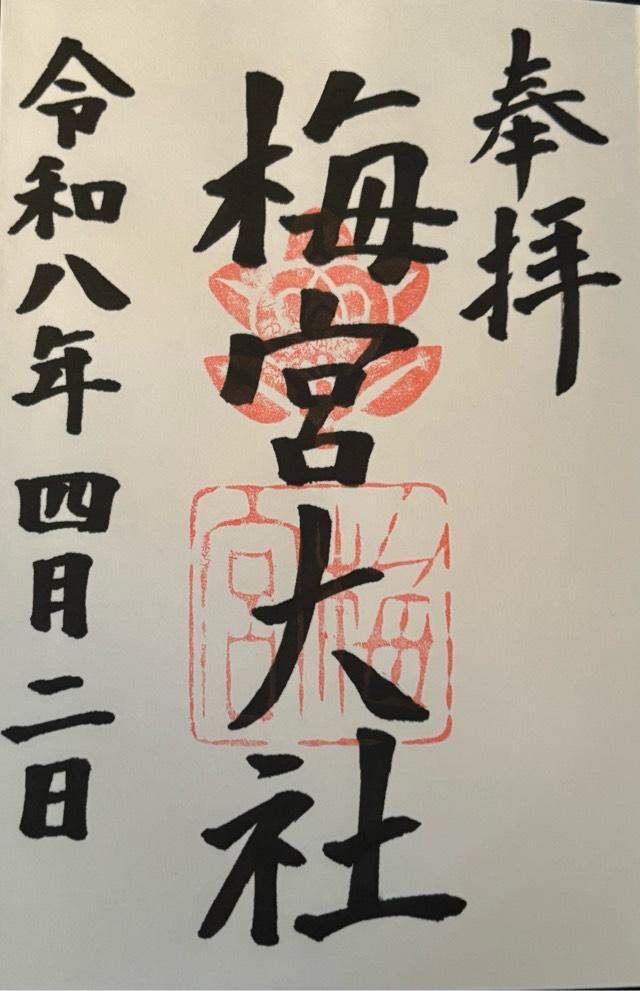 奉拝
梅宮大社
梅宮
令和八年 四月二日